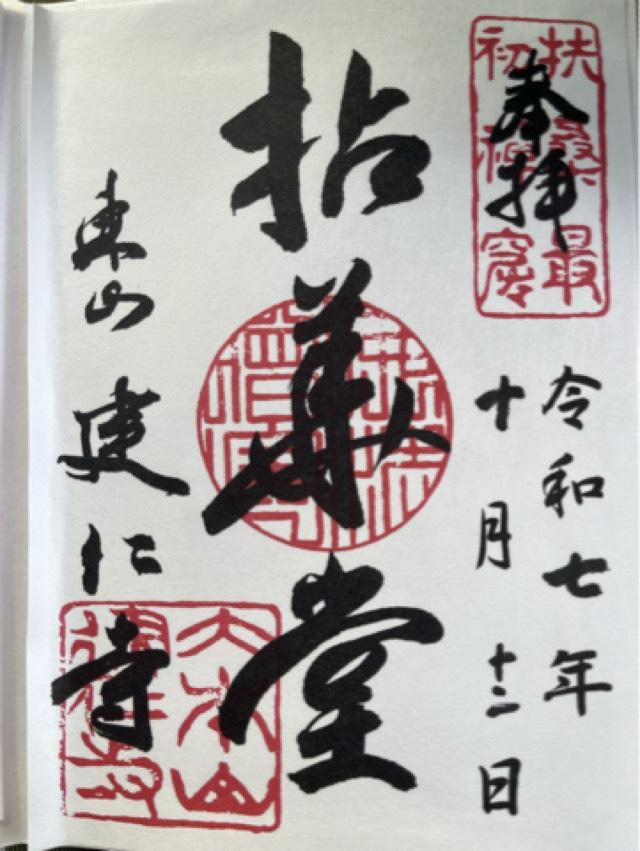 扶桑最
初禅窟
奉拝
令和七年
十月十二日
拈華堂
東山建仁寺
大本山
建仁寺